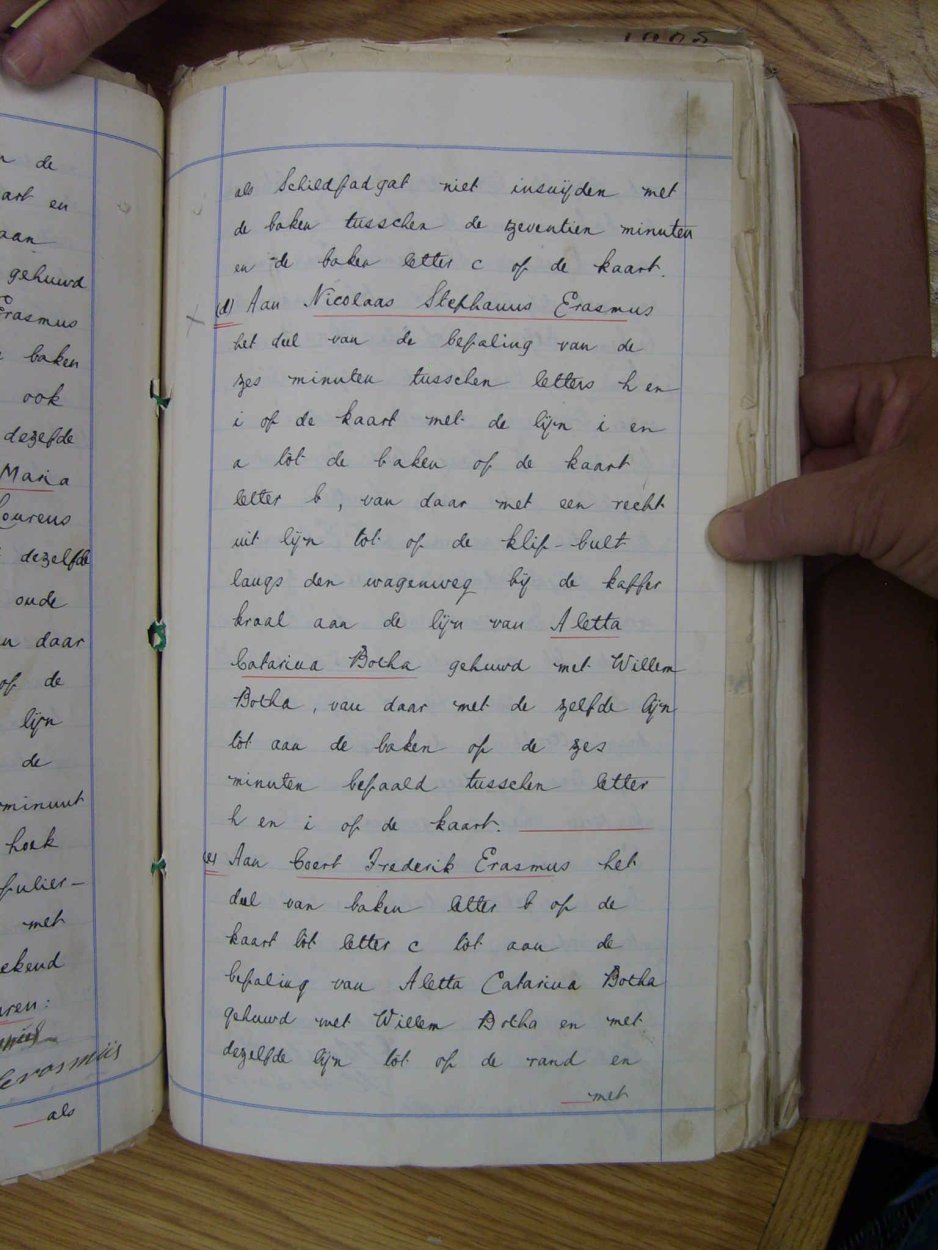 1905
n de
art en
aan
gehuwd
Erasmus
baken
ook
dezelfde
Maria
Lourens
dezelfde
oude
n daar
op de
lijn
de
minuut
hoek
pulier-
met
ekend
aren:
Erasmus
als
als Schildpadgat niet insnijden met
de baken tusschen de zeventien minuten
en de baken letter c op de kaart.
(d) Aan Nicolaas Stephanus Erasmus
het deel van de bepaling van de
zes minuten tusschen letters h en
i op de kaart met de lijn i en
a tot de baken op de kaart
letter b, van daar met een recht
uit lijn tot op de klip-bult
langs den wagenweg bij de kaffer
kraal aan de lijn van Aletta
Catarina Botha gehuwd met Willem
Botha, van daar met de zelfde lijn
tot aan de baken op de zes
minuten bepaald tusschen letter
h en i op de kaart.
(e) Aan Coert Frederik Erasmus het
deel van baken letter b op de
kaart tot letter c tot aan de
bepaling van Aletta Catarina Botha
gehuwd met Willem Botha en met
dezelfde lijn tot op de rand en
met